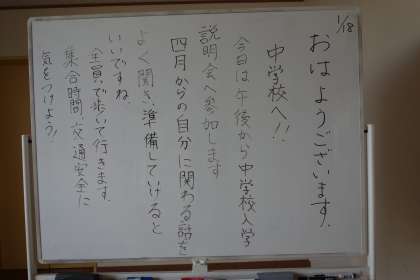 1/18
おはようございます。
中学校へ!!
今日は午後から中学校入学
説明会へ参加します
四月からの自分に関わる話を
よく聞き、準備していけると
いいですね。
全員で歩いて行きます。
集合時間、交通安全に
気をつけよう!